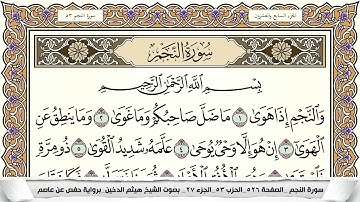 الجزء السابع والعشرون
سورة النجم ٥٣
سُورَةُ النَّجْمِ
بِسْمِ اللَّهِ الرَّحْمَٰنِ الرَّحِيمِ
وَالنَّجْمِ إِذَا هَوَىٰ ١ مَا ضَلَّ صَاحِبُكُمْ وَمَا غَوَىٰ ٢ وَمَا يَنطِقُ عَنِ
الْهَوَىٰ ٣ إِنْ هُوَ إِلَّا وَحْيٌ يُوحَىٰ ٤ عَلَّمَهُ شَدِيدُ الْقُوَىٰ ٥ ذُو مِرَّةٍ
سورة النجم _الصفحة ٥٢٦_الحزب ٥٣_الجزء ٢٧_ بصوت الشيخ هيثم الدخين _برواية حفص عن عاصم